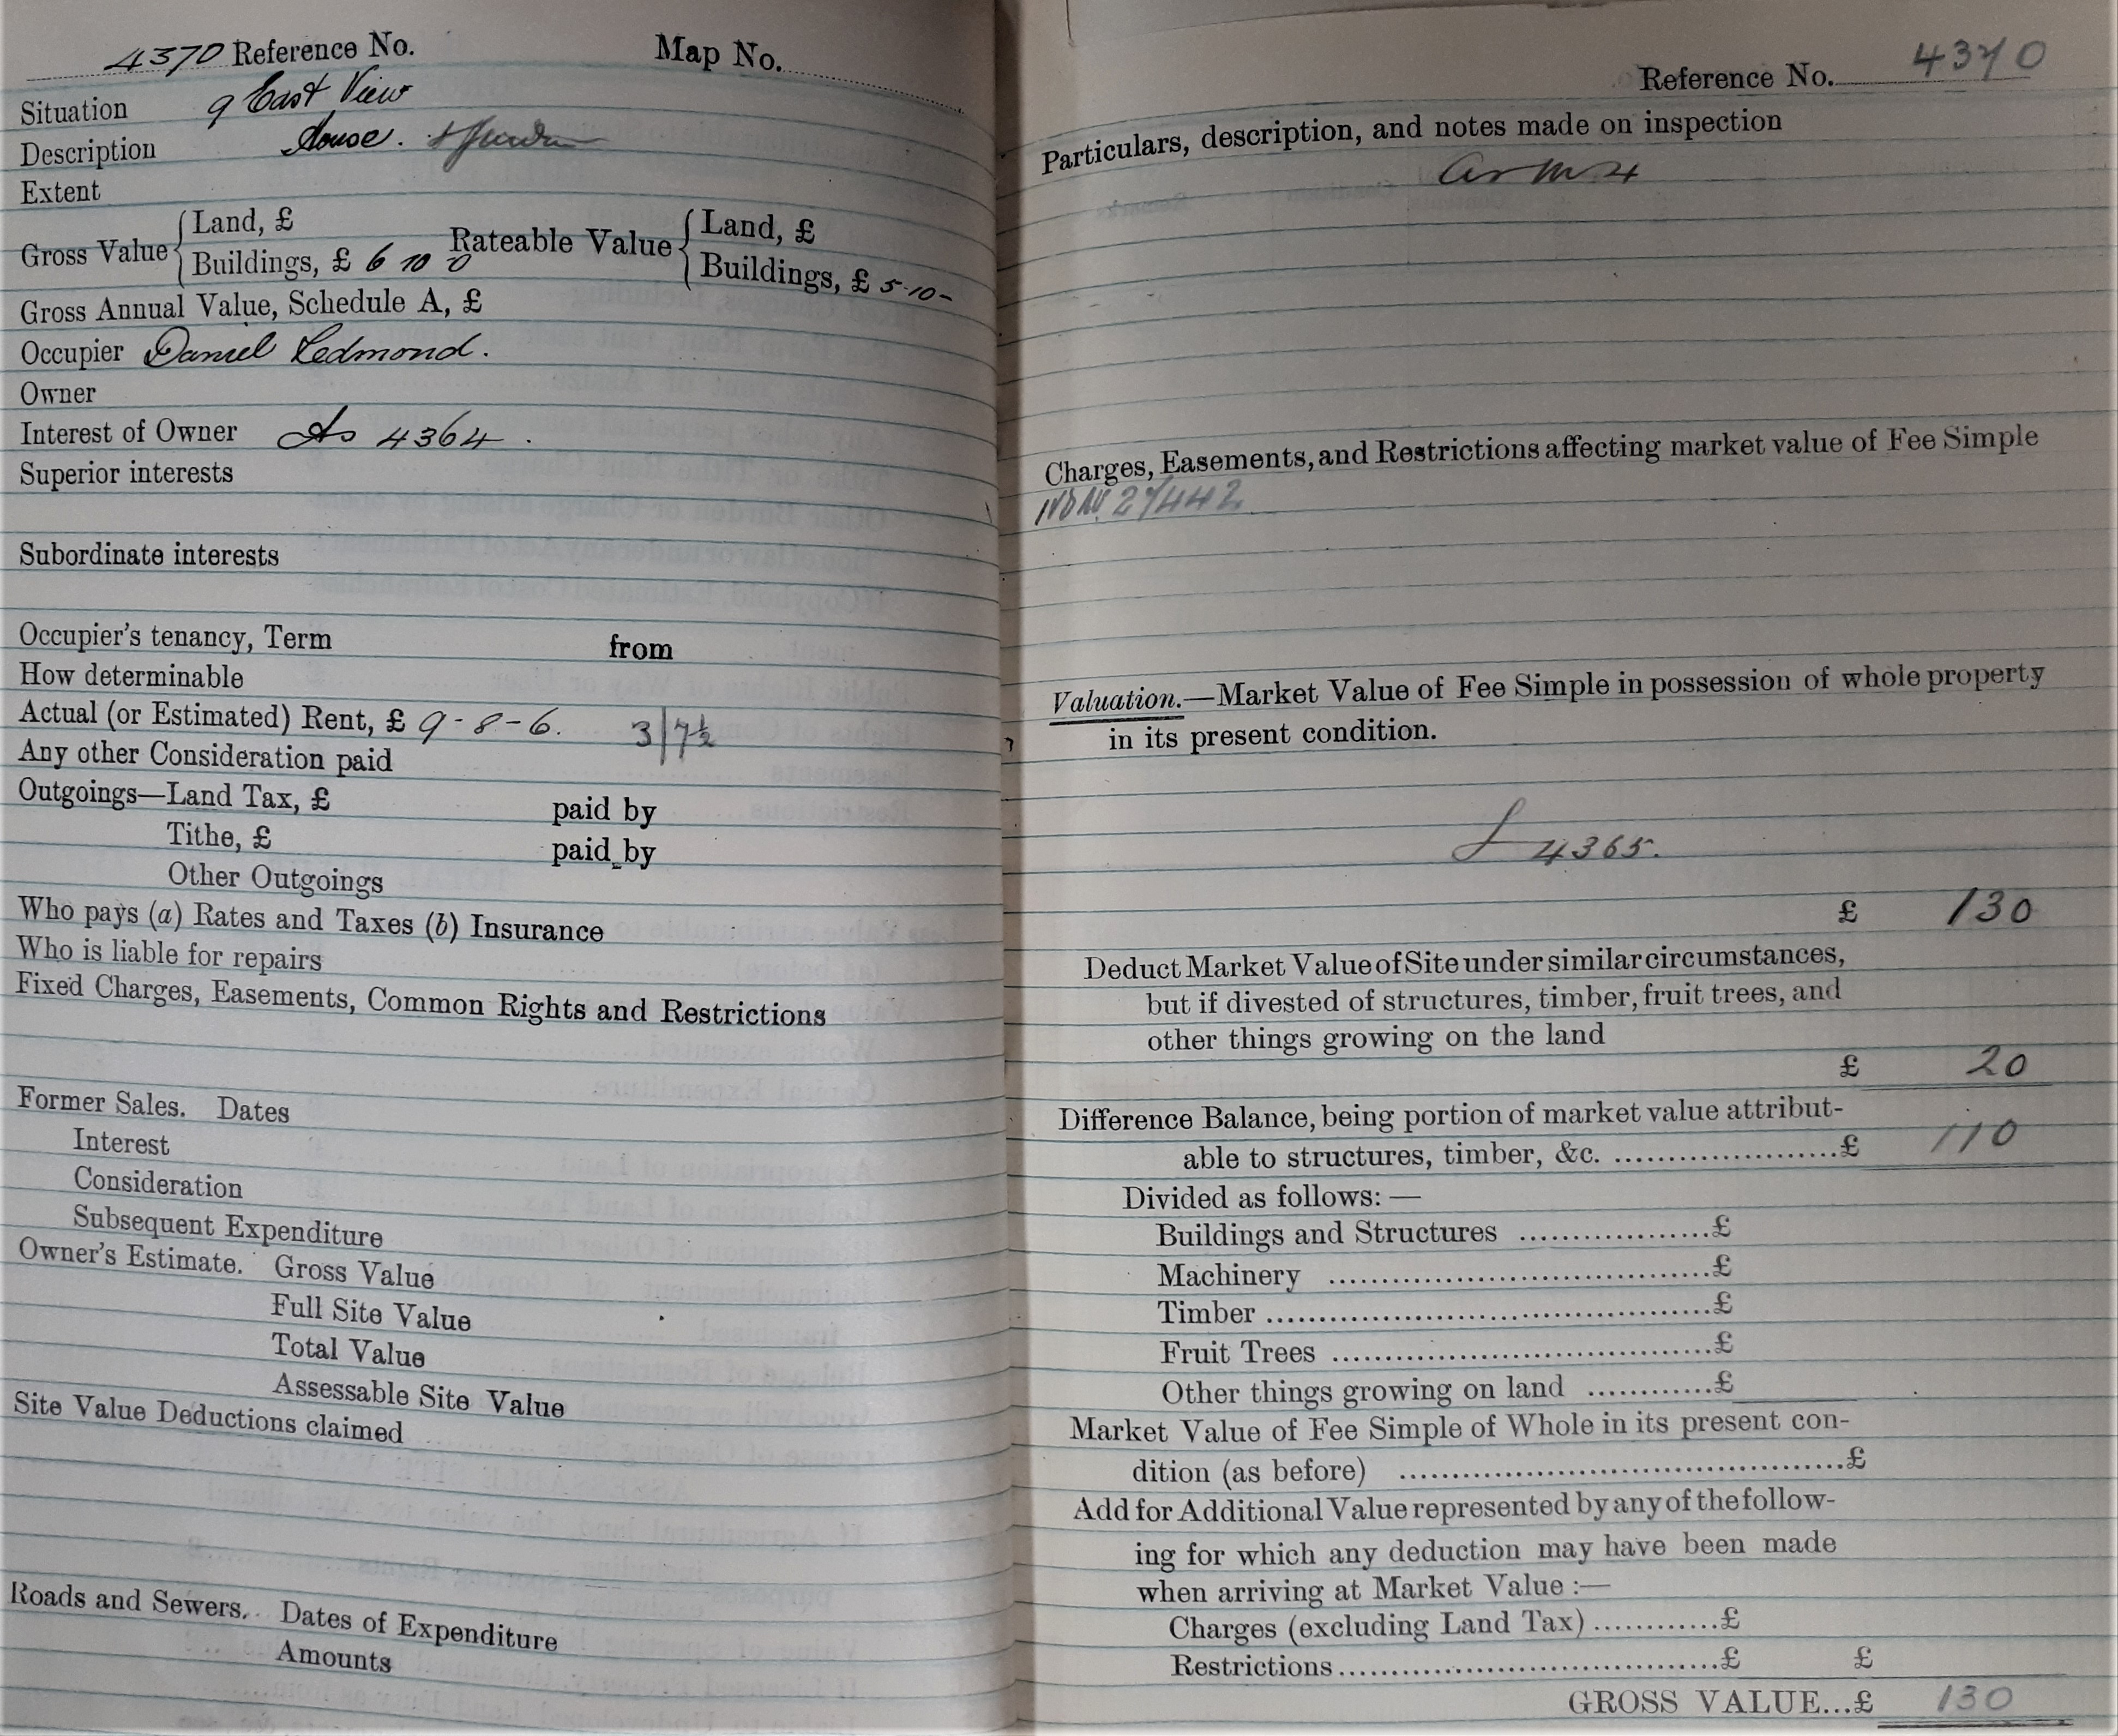 4370 Reference No. Map No.
Situation 9 East View
Description House.
Extent
Gross Value { Land, £ Rateable Value { Land, £
Buildings, £ 6 10 0 Buildings, £ 5-10-
Gross Annual Value, Schedule A, £
Occupier Daniel Redmond.
Owner
Interest of Owner As 4364.
Superior interests
Subordinate interests
Occupier's tenancy, Term from
How determinable
Actual (or Estimated) Rent, £ 9-8-6. 3/7½
Any other Consideration paid
Outgoings—Land Tax, £ paid by
Tithe, £ paid by
Other Outgoings
Who pays (a) Rates and Taxes (b) Insurance
Who is liable for repairs
Fixed Charges, Easements, Common Rights and Restrictions
Former Sales. Dates
Interest
Consideration
Subsequent Expenditure
Owner's Estimate. Gross Value
Full Site Value
Total Value
Assessable Site Value
Site Value Deductions claimed
Roads and Sewers. Dates of Expenditure
Amounts
Reference No. 4370
Particulars, description, and notes made on inspection
Charges, Easements, and Restrictions affecting market value of Fee Simple
27442
Valuation.—Market Value of Fee Simple in possession of whole property
in its present condition.
4365.
£ 130
Deduct Market Value of Site under similar circumstances,
but if divested of structures, timber, fruit trees, and
other things growing on the land
£ 20
Difference Balance, being portion of market value attribut-
able to structures, timber, &c. ....................£ 110
Divided as follows:—
Buildings and Structures .................£
Machinery ..................................£
Timber ........................................£
Fruit Trees ..................................£
Other things growing on land ...........£
Market Value of Fee Simple of Whole in its present con-
dition (as before) ........................................£
Add for Additional Value represented by any of the follow-
ing for which any deduction may have been made
when arriving at Market Value :—
Charges (excluding Land Tax) ...........£
Restrictions..................................£ £
GROSS VALUE...£ 130